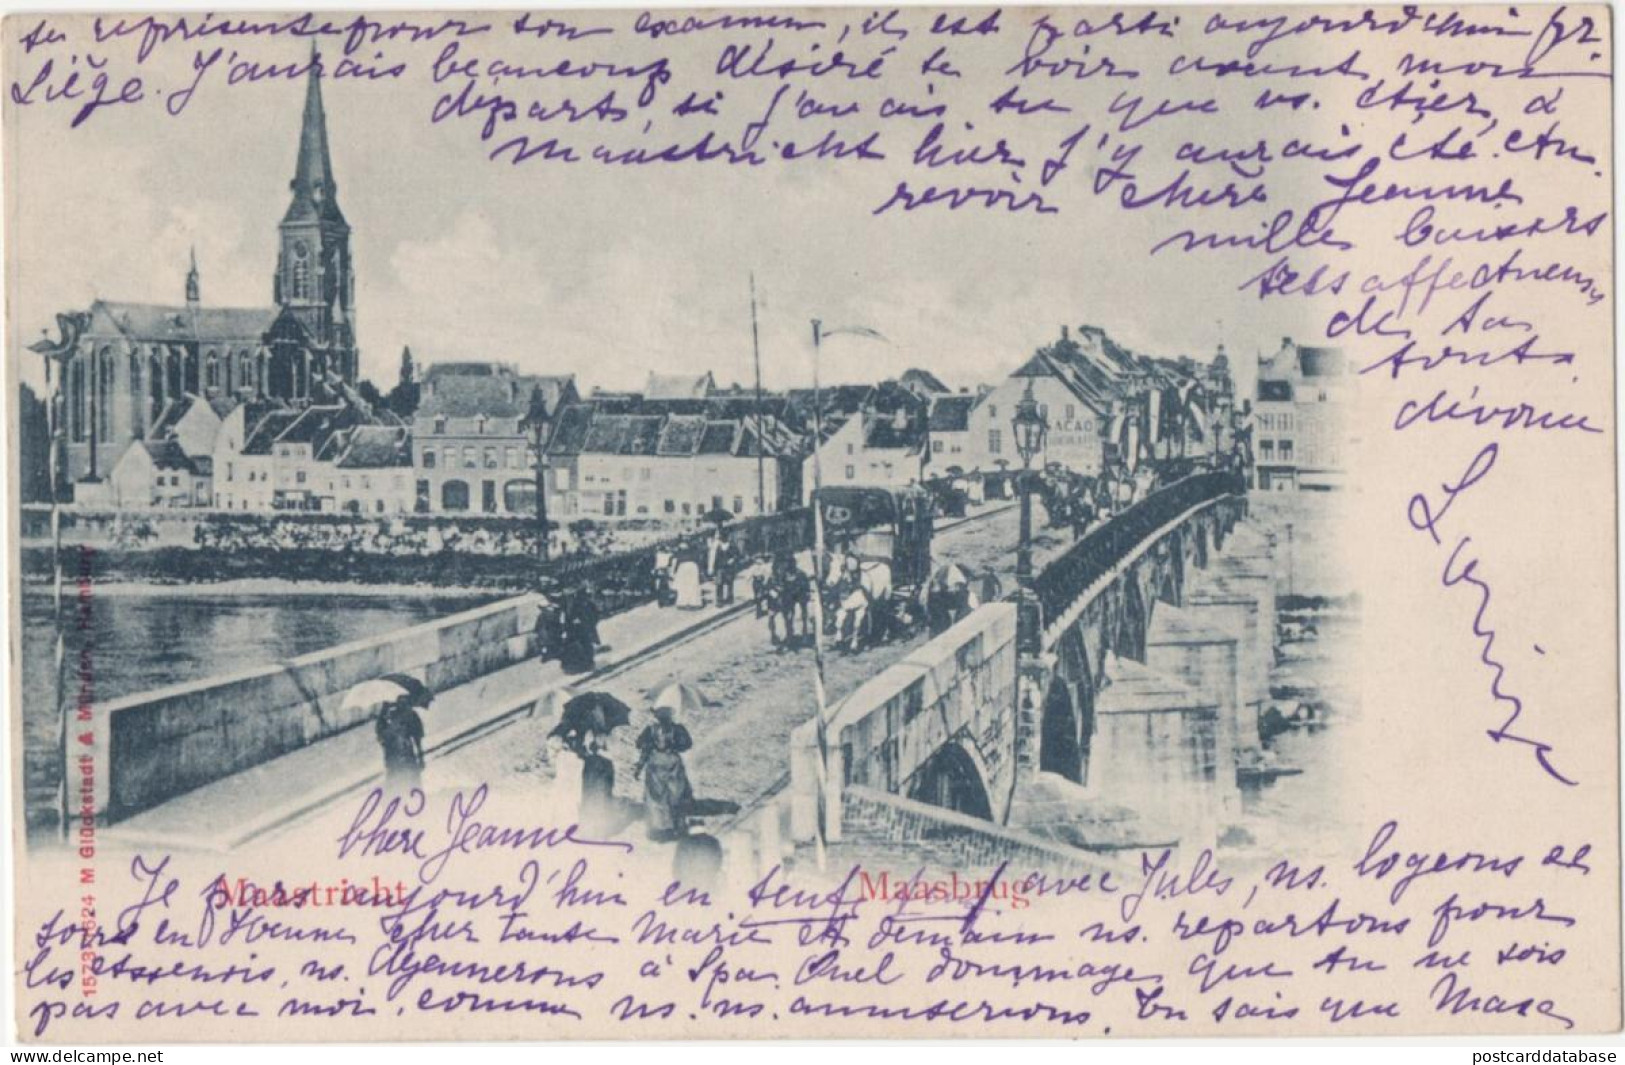 se représente pour son examen, il est parti aujourd'hui pr.
Liège. J'aurais beaucoup désiré te voir avant mon
départ, si j'avais su que vs. étiez à
Maastricht hier j'y aurais été. Au
revoir chère Jeanne
mille baisers
très affectueux
de ta
toute
dévouée
Louise
CACAO
Chère Jeanne
Maastricht
Maasbrug
Je pars aujourd'hui en teuf teuf avec Jules, ns. logerons ce
soir en chez tante Marie et demain ns. repartons pour
les ns. déjeunerons à Spa. Quel dommage que tu ne sois
pas avec moi, comme ns. ns. amuserions. Tu sais que Max
15737 1624 M Glückstadt & Münden, Hamburg
postcard-collecting.com
postcarddatabase